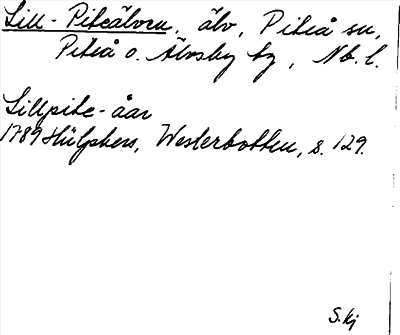 Lill-Piteälven, älv, Piteå sn,
Piteå o. Älvsby tg, Nb. l.
Lillpite-åar
1789 Hülphers, Westerbotten, s. 129.
S. Kj